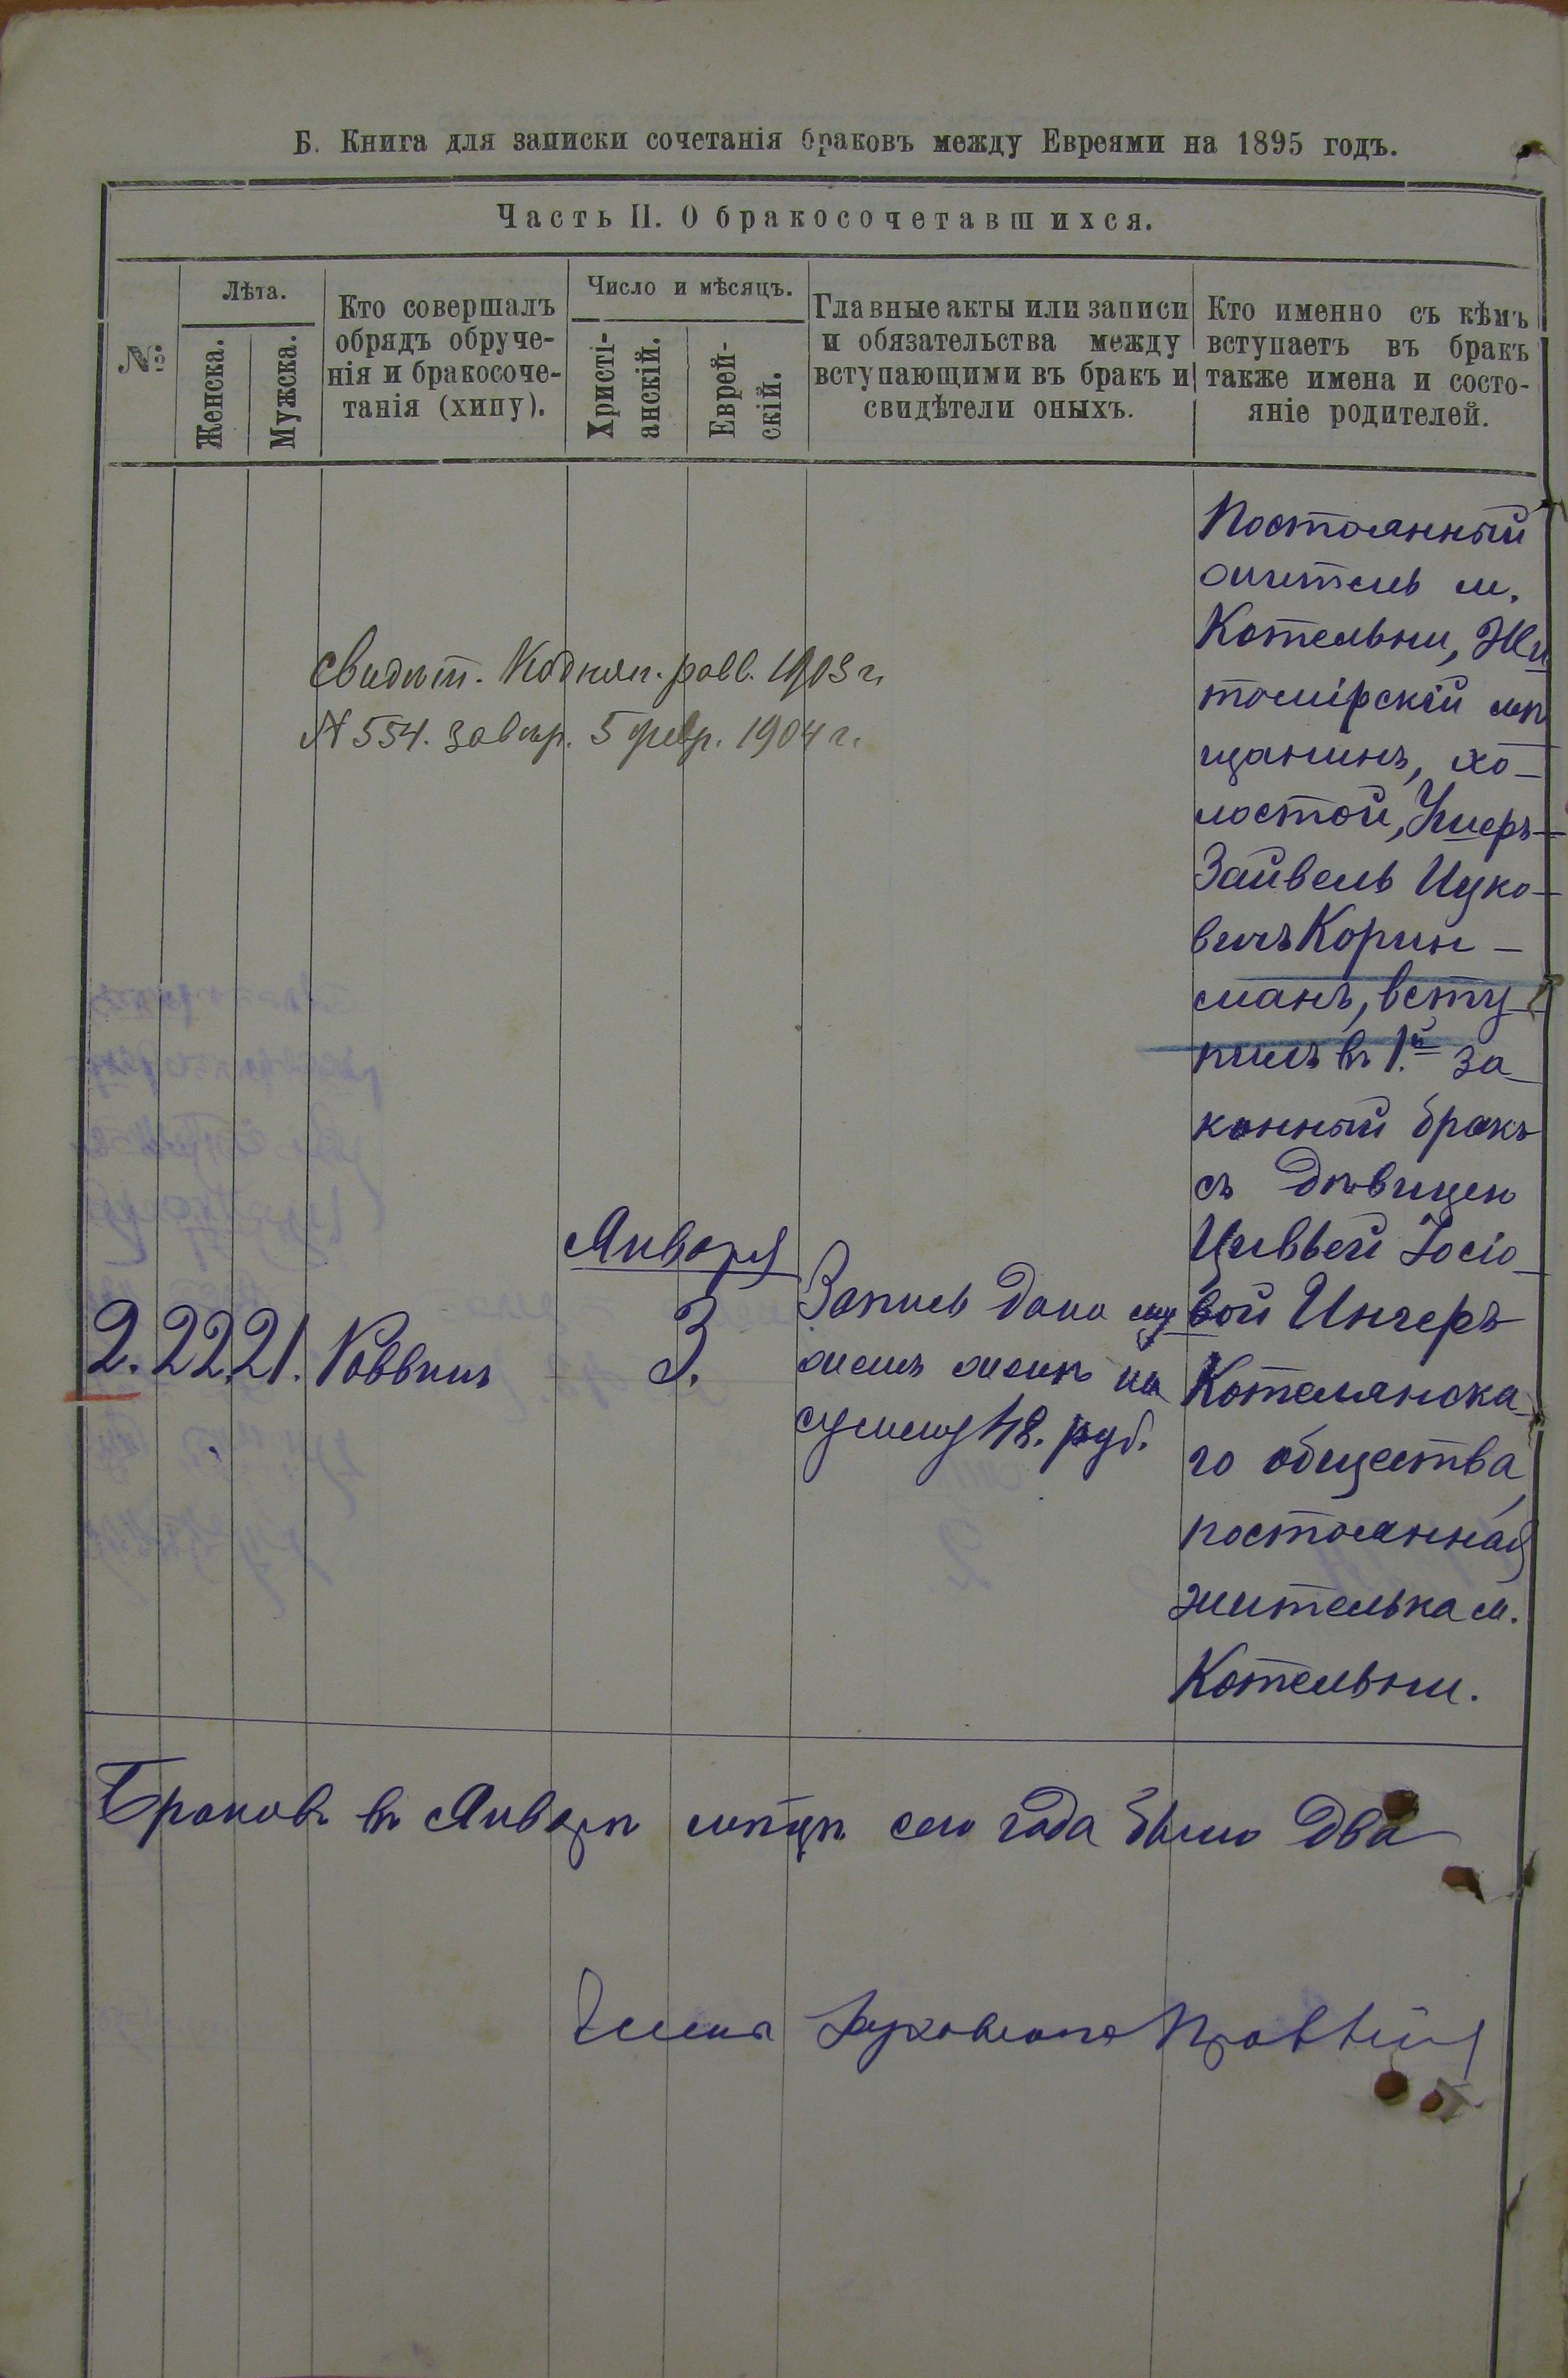 Б. Книга для записки сочетанія браковъ между Евреями на 1895 годъ.
Часть II. О бракосочетавшихся.
№
Лѣта.
Женска.
Мужска.
Кто совершалъ
обрядъ обруче-
нія и бракосоче-
танія (хипу).
Число и мѣсяцъ.
Христі-
анскій.
Еврей-
скій.
Главные акты или записи
и обязательства между
вступающими въ бракъ и
свидѣтели оныхъ.
Кто именно съ кѣмъ
вступаетъ въ бракъ
также имена и состо-
яніе родителей.
Свидѣт. равв. 1903 г.
№ 554. 5 февр. 1904 г.
2. 22. 21. Раввинъ
Января
3.
Запись дана му
жемъ женѣ на
сумму 48. руб.
Постоянный
житель м.
Котельни, Жи
томірскій мѣ
щанинъ, хо-
лостой, Ушеръ-
Зайвель Ицко-
вичъ Корин-
сманъ, всту-
пилъ въ 1.й за-
конный бракъ
съ дѣвицею
Цивьей Іосіо-
вой Ингеръ
Котелянска-
го общества,
постоянная
жителька м.
Котельни.
Браковъ въ Январѣ мѣсяцѣ сего года было два
Члены Духовнаго Правленія